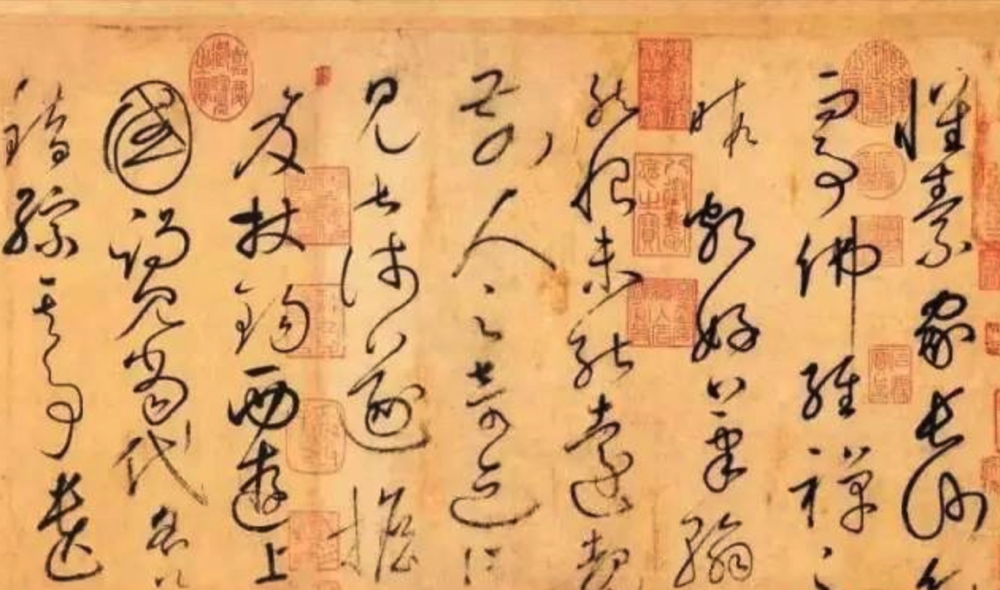 懷素家長沙幼
而事佛經禪之
暇頗好筆翰
然恨未能遠覩
前人之奇迹所
見甚淺遂擔
笈杖錫西遊上
國謁見當代名公
錯綜其事遺